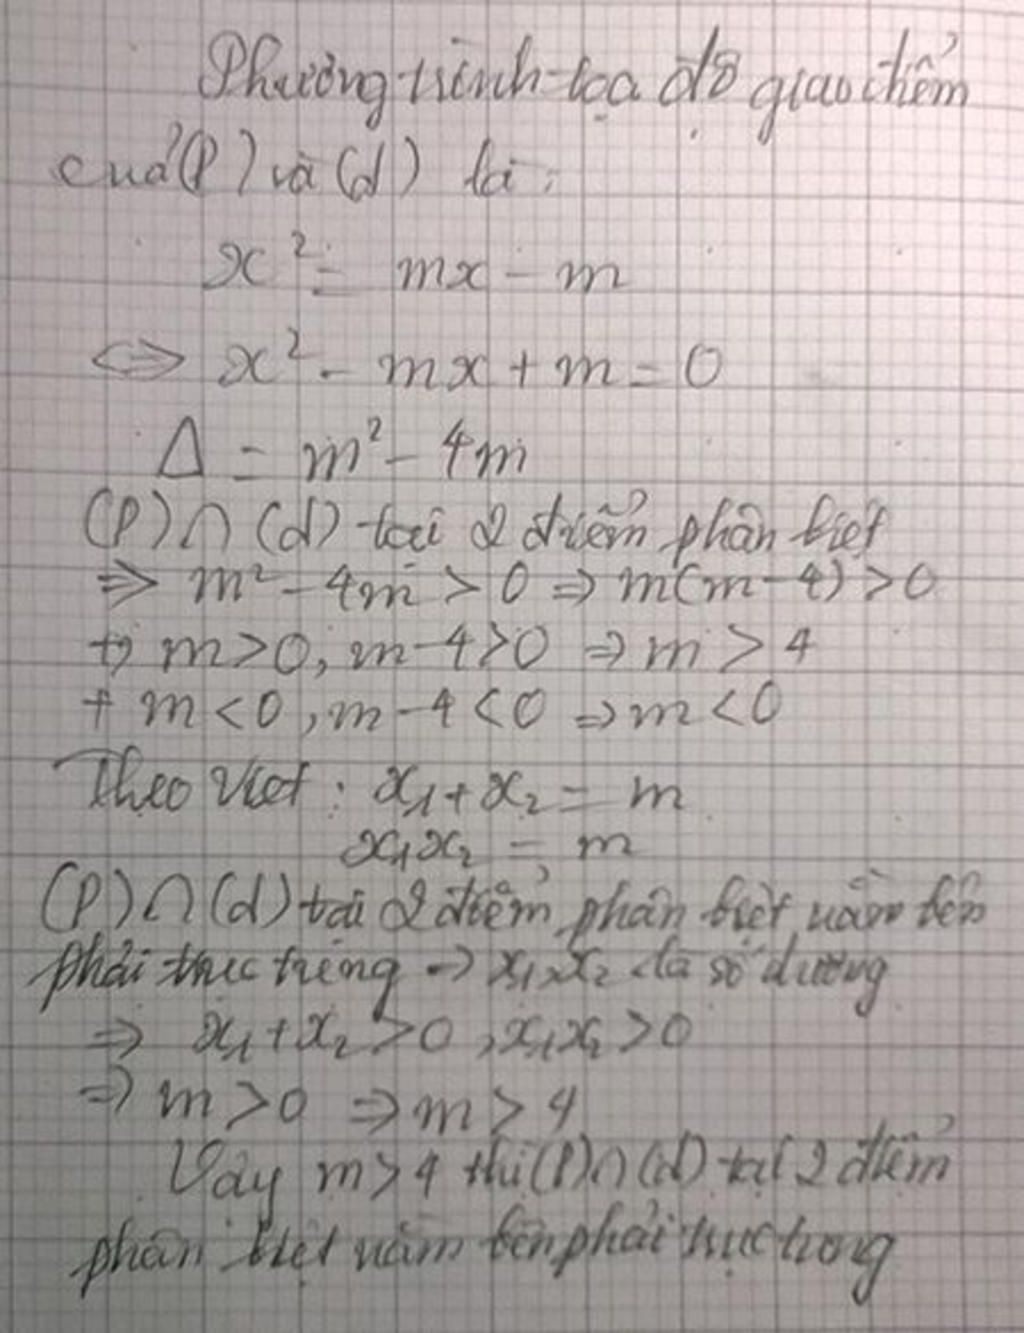 Phương trình tọa độ giao điểm
của (P) và (d) là:
x² = mx - m
⇔ x² - mx + m = 0
Δ = m² - 4m
(P) ∩ (d) tại 2 điểm phân biệt
⇒ m² - 4m > 0 ⇒ m(m-4) > 0
+) m > 0, m-4 > 0 ⇒ m > 4
+ m < 0, m-4 < 0 ⇒ m < 0
Theo Viet: x₁ + x₂ = m
x₁x₂ = m
(P) ∩ (d) tại 2 điểm phân biệt nằm bên
phải trục tung → x₁, x₂ là số dương
⇒ x₁ + x₂ > 0, x₁x₂ > 0
⇒ m > 0 ⇒ m > 4
Vậy m > 4 thì (P) ∩ (d) tại 2 điểm
phân biệt nằm bên phải trục tung